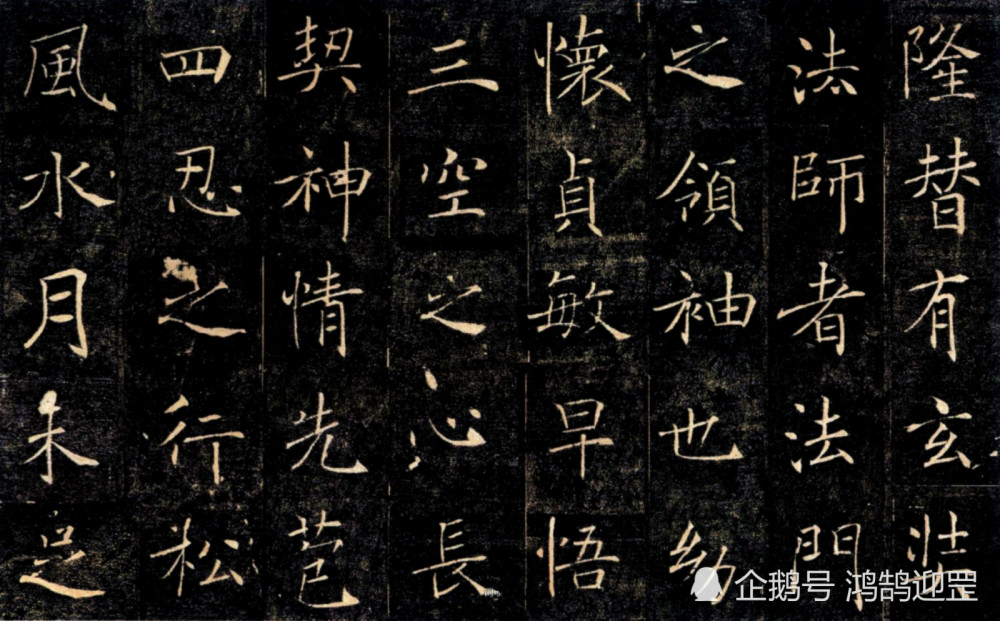 隆替有玄奘
法師者法門
之領袖也幼
懷貞敏早悟
三空之心長
契神情先苞
四忍之行松
風水月未足
企鹅号 鸿鹄迎罡